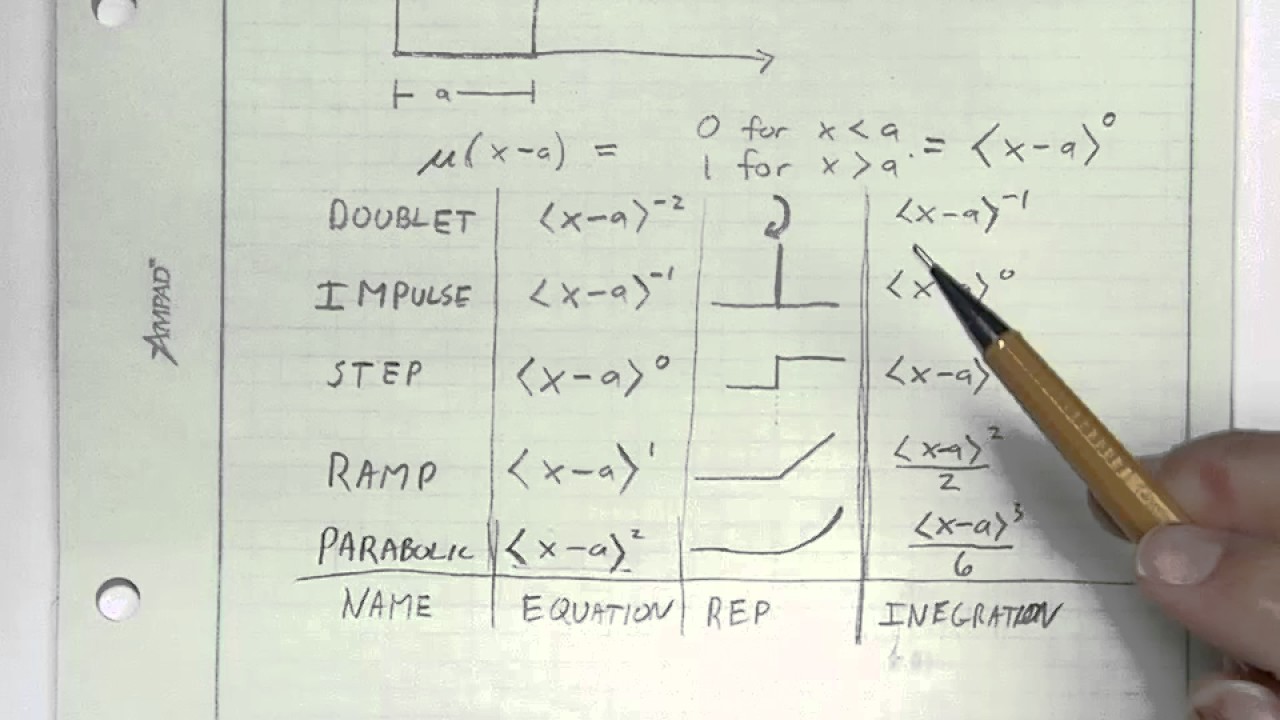 a
μ(x-a) = 0 for x < a = ⟨x-a⟩⁰
1 for x > a.
DOUBLET ⟨x-a⟩⁻² ⟨x-a⟩⁻¹
IMPULSE ⟨x-a⟩⁻¹ ⟨x-a⟩⁰
STEP ⟨x-a⟩⁰ ⟨x-a⟩
RAMP ⟨x-a⟩¹ ⟨x-a⟩²
2
PARABOLIC ⟨x-a⟩² ⟨x-a⟩³
6
NAME EQUATION REP INEGRATION
AMPAD™